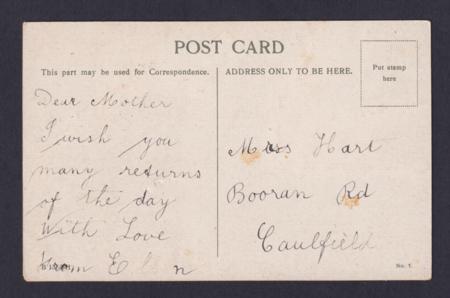 POST CARD
This part may be used for Correspondence.
ADDRESS ONLY TO BE HERE.
Put stamp
here
Dear Mother
I wish you
many returns
of the day
With Love
from
Hart
Booran Rd
Caulfield
No. 7.